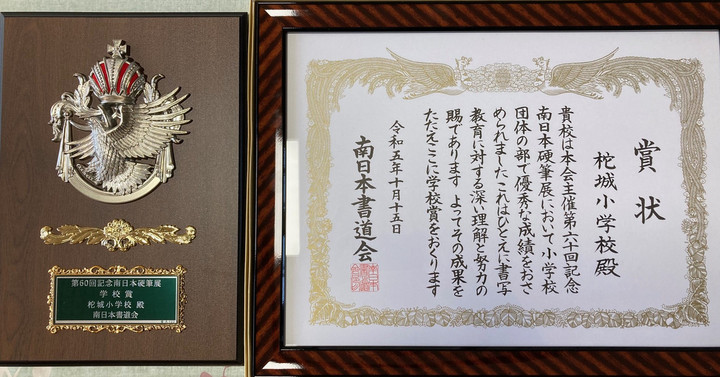 第60回記念南日本硬筆展
学校賞
柁城小学校 殿
南日本書道会
賞状
柁城小学校殿
貴校は本会主催第六十回記念
南日本硬筆展において小学校
団体の部で優秀な成績をおさ
められました これはひとえに書写
教育に対する深い理解と努力の
賜であります よってその成果を
たたえここに学校賞をおくります
令和五年十月十五日
南日本書道会